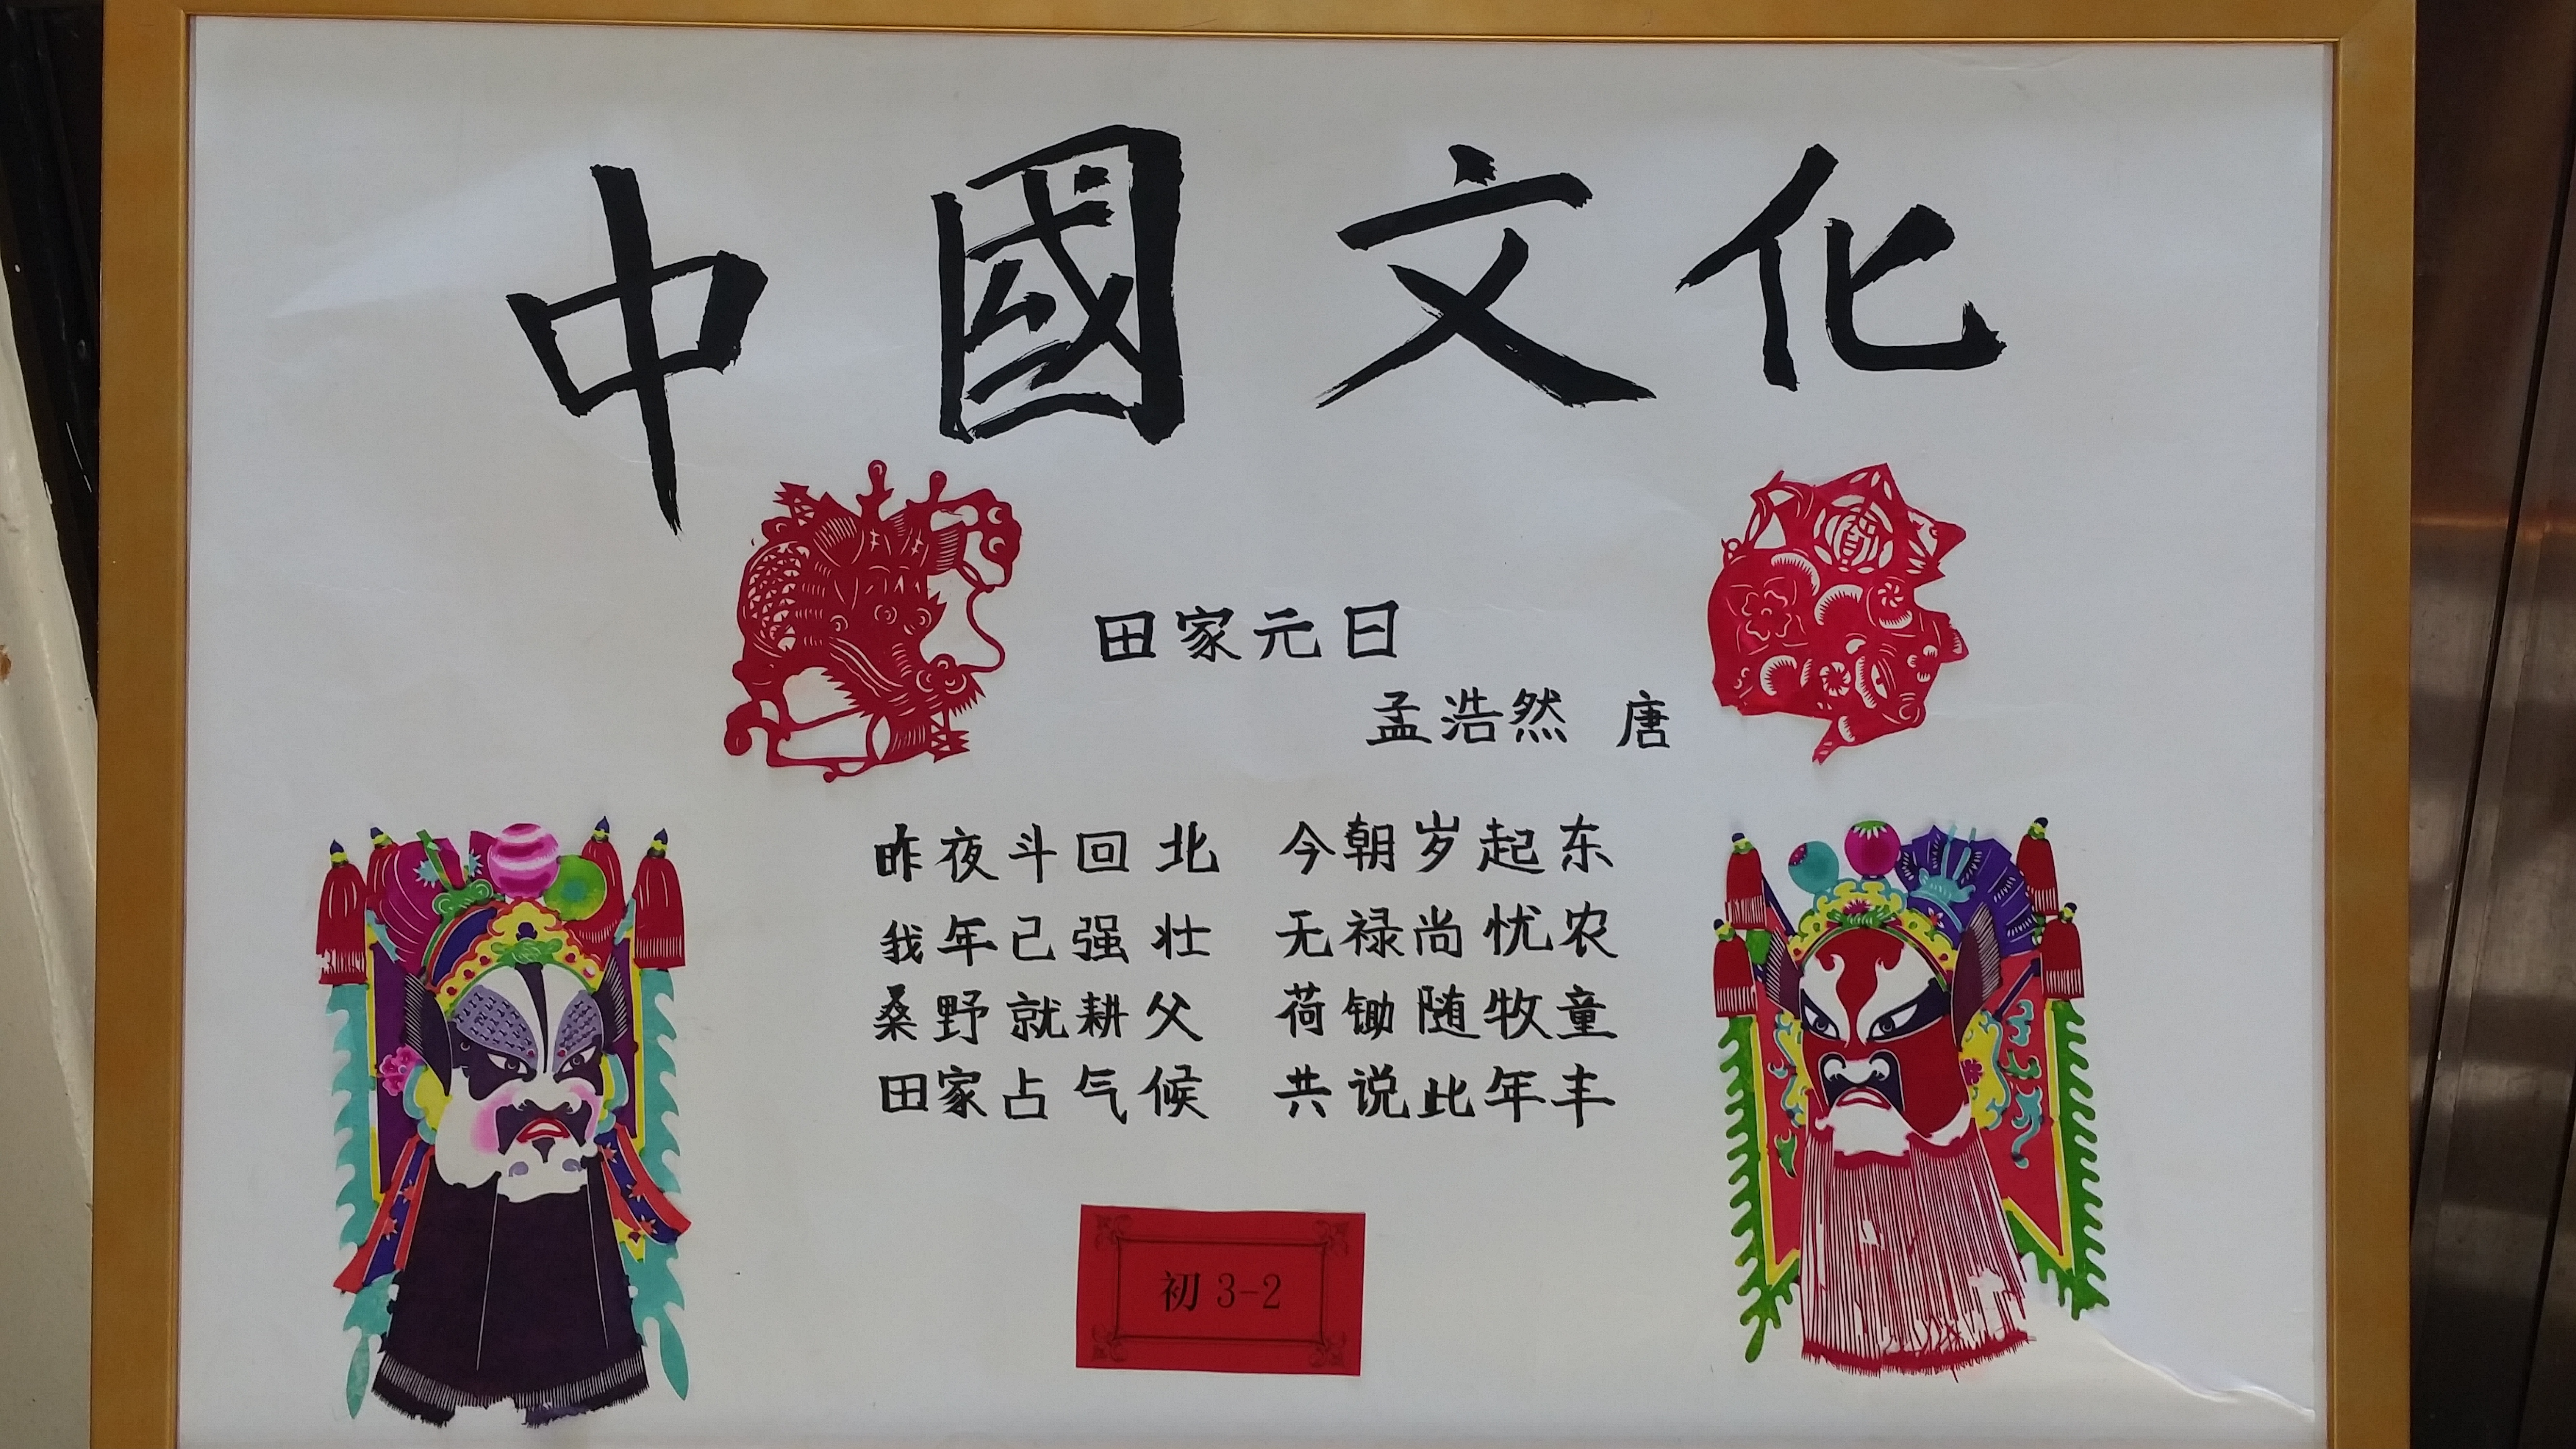 中國文化
田家元日
孟浩然 唐
昨夜斗回北 今朝岁起东
我年已强壮 无禄尚忧农
桑野就耕父 荷锄随牧童
田家占气候 共说此年丰
初 3-2